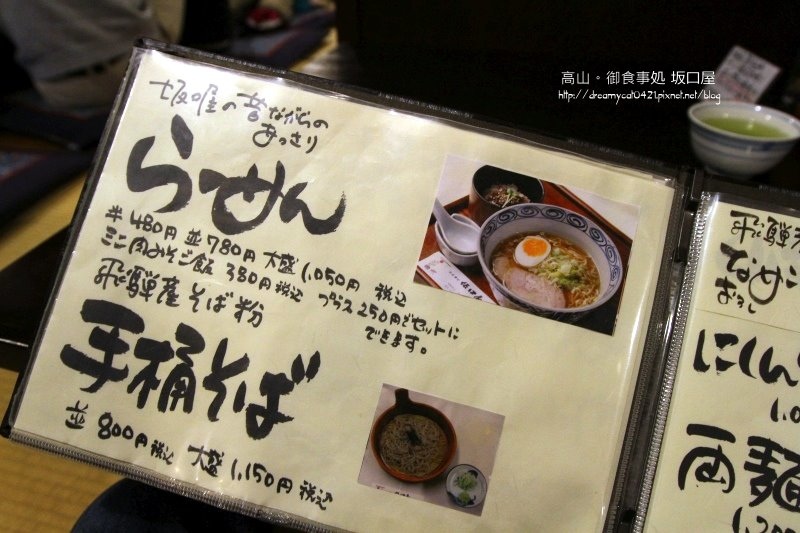 高山。御食事処 坂口屋
http://dreamycat0421.pixnet.net/blog
坂口屋の昔ながらの
あっさり
らーめん
半 480円 並 780円 大盛 1,050円 税込
ミニ肉みそご飯 380円 税込 プラス250円でセットに
できます。
飛騨産そば粉
手桶そば
並 800円 税込 大盛 1,150円 税込
飛騨
なめこ
おろし
にしん
1,0
両麺
1,200